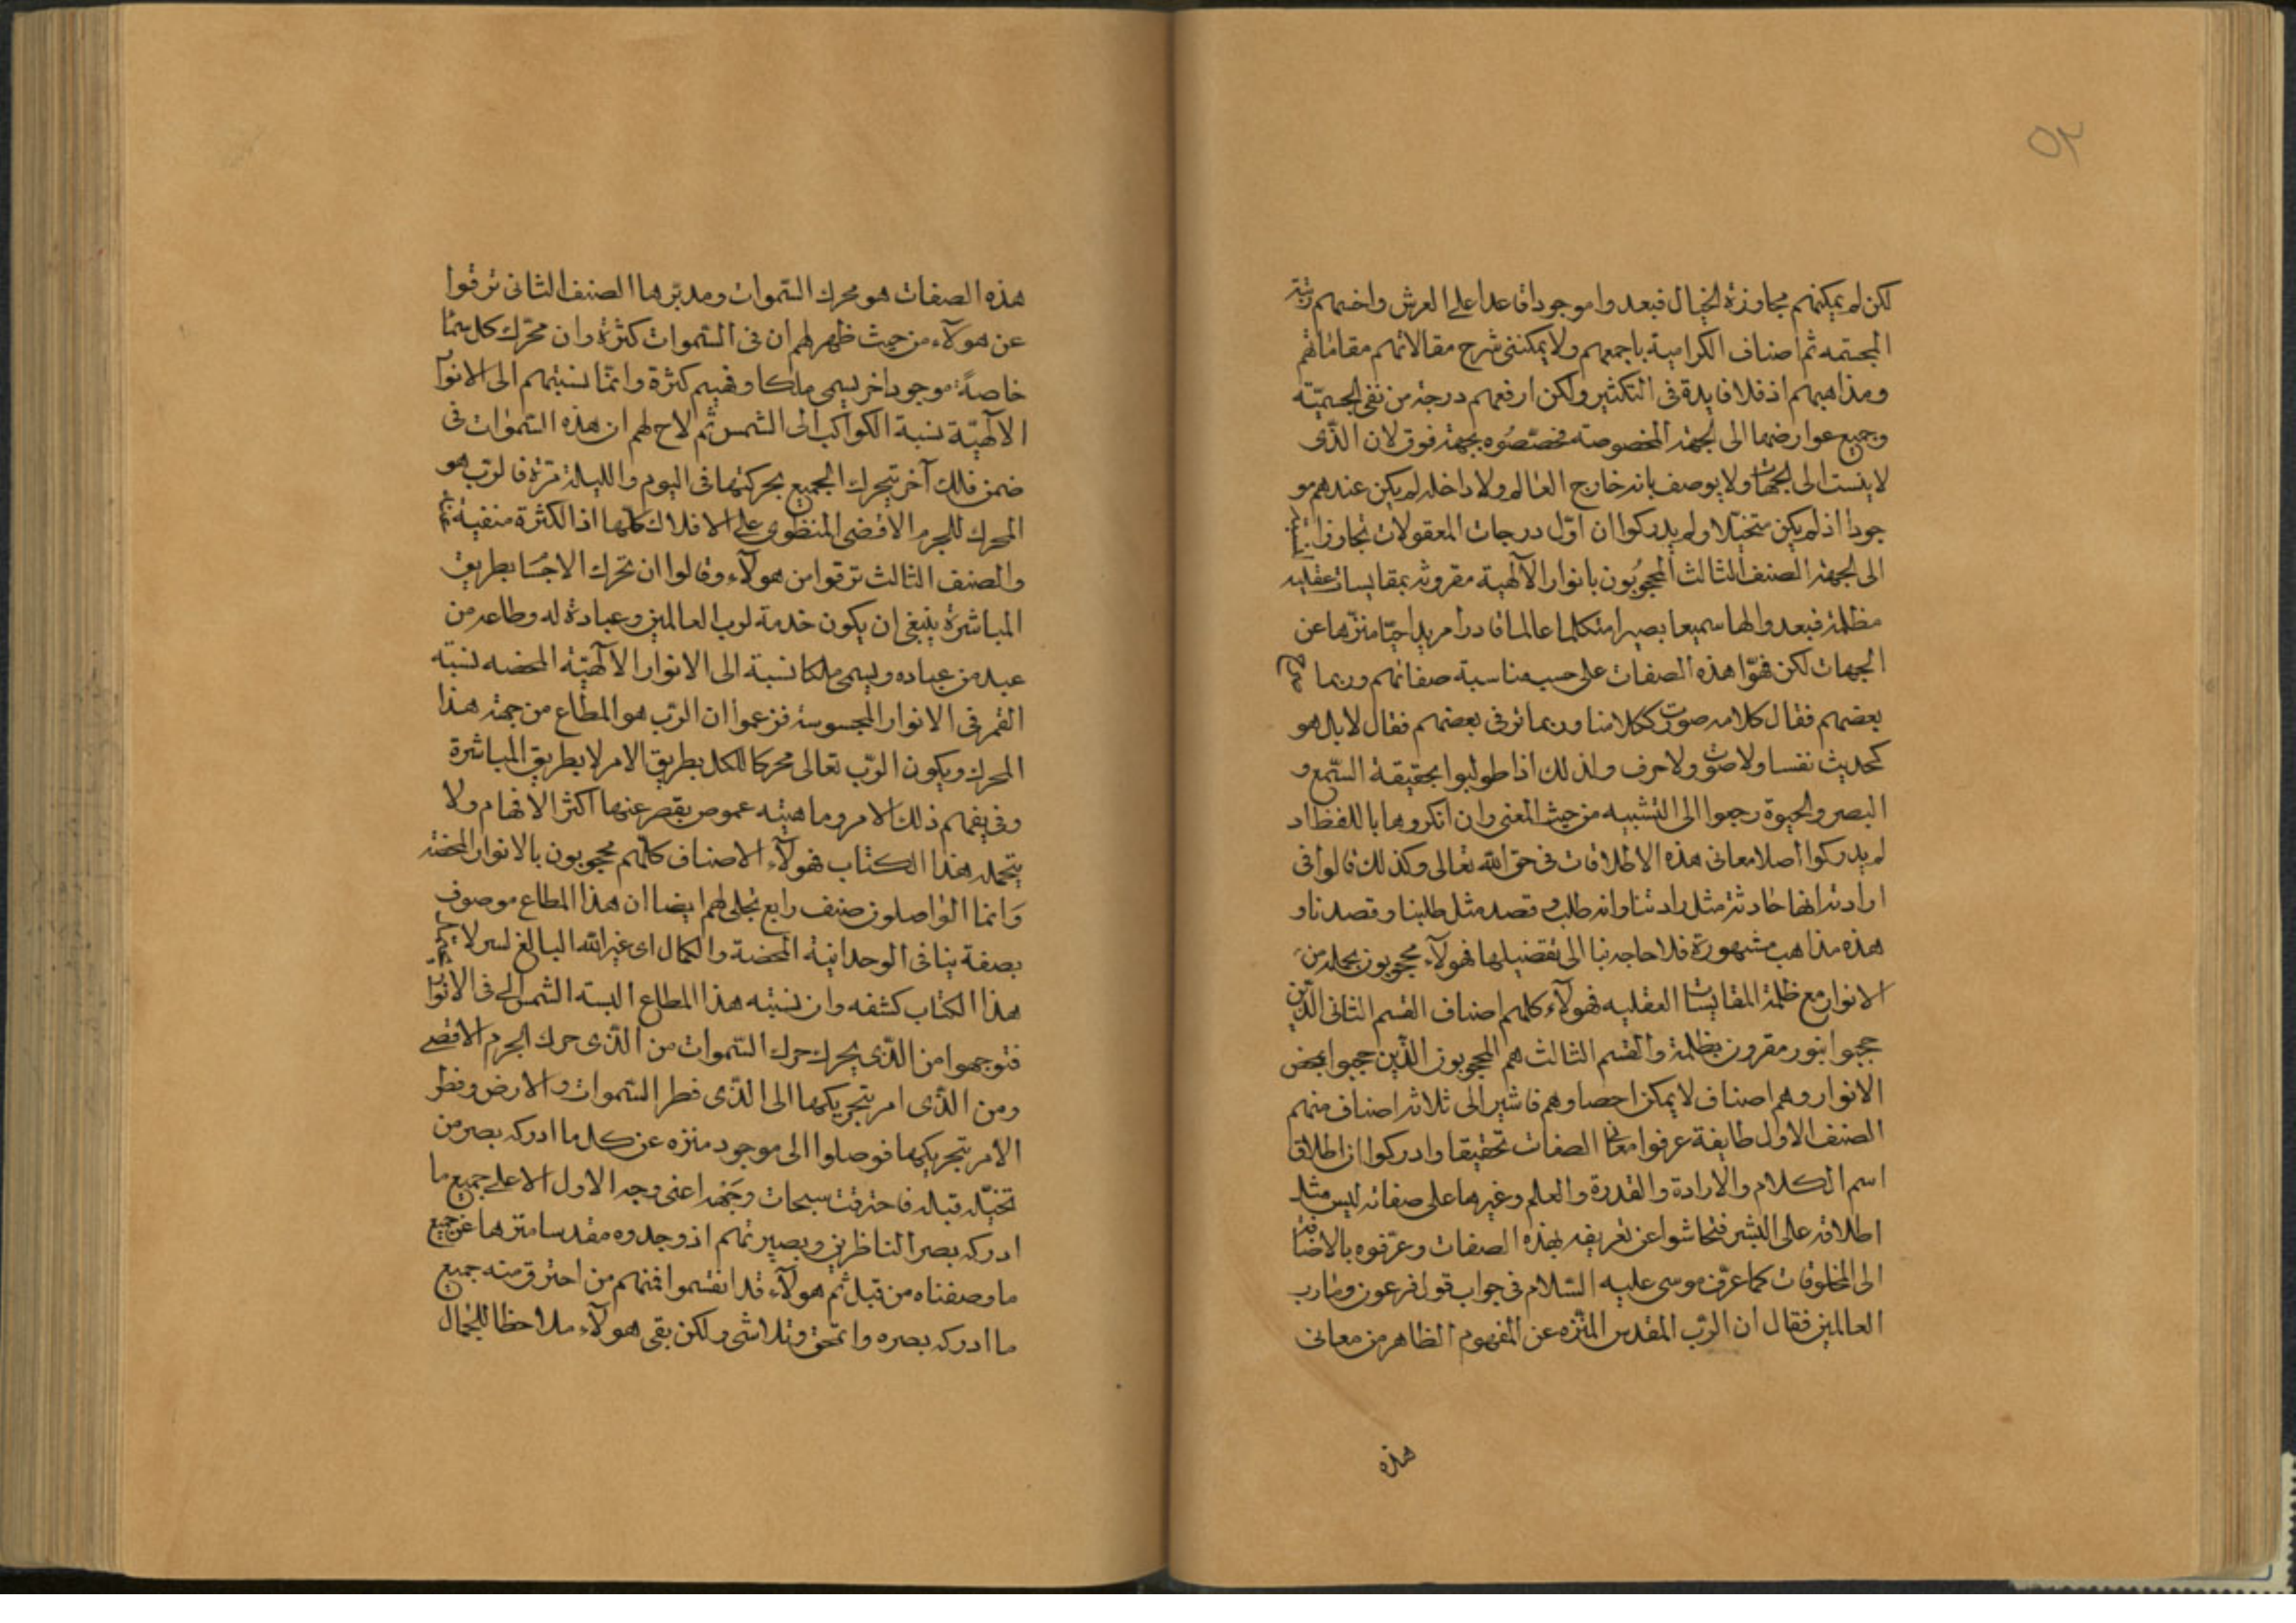 لكن لم يمكنهم مجاوزة الخيال فبعدوا موجودا قاعدا على العرش واخسهم رتبة
المجسمه ثم اصناف الكرامية باجمعهم ولا يمكننى شرح مقالاتهم مقاماتهم
ومذاهبهم اذ فلا فايدة فى التكثير ولكن ارفعهم درجة من نفى الجسميّة
وجميع عوارضها الى الجهة المخصوصة فخصّصُوه بجهة فوق لان الذّى
لا ينست الى الجهات ولا يوصف بانه خارج العالم ولا داخله لم يكن عندهم مو
جودا اذ لم يكن متخيّلا ولم يدركوا ان اوّل درجات المعقولات تجاوز
الى الجهة الصنف الثالث المحجوبُون بانوار الآلهية مقرونة بمقايسات عقليه
مظلمة فبعدوا الها سميعا بصيرا متكلما عالما قادرا مريدا حيّا منزّها عن
الجهات لكن فهّوا هذه الصفات على حسب مناسبة صفاتهم وربما صرح
بعضهم فقال كلامه صوت ككلامنا وربما ترقى بعضهم فقال لا بل هو
كحديث نفسا ولا صوت ولا حرف ولذلك اذا طولبوا بحقيقة السّمع و
البصر والحيوة رجعوا الى التشبيه من حيث المعنى وان انكروها باللفظ اد
لم يدركوا اصلا معانى هذه الاطلاقات فى حق الله تعالى وكذلك قالوا فى
ارادته انها حادثة مثل رادتنا وانه طلب وقصد مثل طلبنا وقصدنا و
هذه مذاهب مشهورة فلا حاجة بنا الى تفضيلها فهولآء محجوبون بجملة من
الانوار مع ظلمة المقايسات العقليه فهولآء كلهم اصناف القسم الثانى الذّين
حجبوا بنور مقرون بظلمة والقسم الثالث هم المحجوبون الذّين حجبوا بمحض
الانوار وهم اصناف لا يمكن احصاوهم فاشير الى ثلاثة اصناف منهم
الصنف الاول طايفة عرفوا معانى الصفات تحقيقا وادركوا ان اطلاق
اسم الكلام والارادة والقدرة والعلم وغيرها على صفاته ليس مثل
اطلاقه على البشر فتحاشوا عن تعريفه بهذه الصفات وعرّفوه بالاضافة
الى المخلوقات كما عرّف موسى عليه السّلام فى جواب قول فرعون وما رب
العالمين فقال ان الرّب المقدس المنزّه عن المفهوم الظاهر من معانى
هذه
هذه الصفات هو محرك السّموات ومدبّرها الصنف الثانى ترقوا
عن هولآء من حيث ظهر لهم ان فى السّموات كثرة وان محّرك كل سمآ
خاصةً موجود اخر يسمى ملكا وفهيم كثرة وانمّا نسبتهم الى الانوار
الآلهيّة نسبة الكواكب الى الشمس ثم لاح لهم ان هذه السّموات فى
ضمن فلك آخر يتحرك الجميع بحركتها فى اليوم والليلة مرّة فالرّب هو
المحرك للجرم الاقصى المنطوى على الافلاك كلها اذ الكثرة منفية عنه
والصنف الثالث ترقوا من هولآء وقالوا ان تحرك الاجسَا بطريق
المباشرة ينبغى ان يكون خدمة لرب العالمين وعبادة له وطاعه من
عبد من عباده ويسمى ملكا نسبة الى الانوار الآلهيّة المحضه نسبة
القمر فى الانوار المحسوسة فزعموا ان الرّب هو المطاع من جهة هذا
المحرك ويكون الرّب تعالى محركا للكل بطريق الامر لا بطريق المباشرة
وفى يفهم ذلك الامر وماهيته عموص يقصر عنها اكثر الافهام ولا
يتحمله هذا الكتاب فهولآء الاصناف كلّهم محجوبون بالانوار المحضة
وَانما الواصلون صنف رابع تجلى لهم ايضا ان هذا المطاع موصوف
بصفة ينافى الوحدانية المحضة والكمال اى غير الله البالغ لسر لا يحتمل
هذا الكتاب كشفه وان نسبته هذا المطاع البسته الشمس الى فى الانوار
فتوجهوا من الذّى يحرك حرك السّموات من الذّى حرك الجرم الاقصى
ومن الذّى امر بتحريكها الى الذّى فطر السّموات والارض وفطر
الامر بتحريكها فوصلوا الى موجود منزه عن كل ما ادركه بصر من
تخيّله قبله فاحترقت سبحات وَجَهه اعنى وجه الاول الاعلى جميع ما
ادركه بصر الناظرين وبصيرتهم اذ وجدوه مقدسا منزها عن جميع
ما وصفناه من قبل ثم هولآء قد انقسموا فمنهم من احترق منه جميع
ما ادركه بصره وانمحق وتلاشى ولكن بقى هولآء ملاحظا للجمال